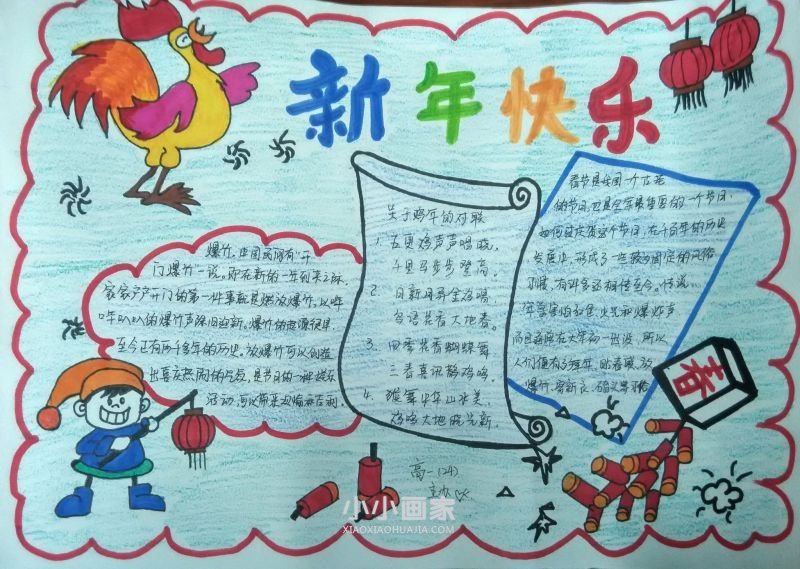 新年快乐
爆竹,中国民间有"开
门爆竹"一说。即在新的一年到来之际,
家家户户开门的第一件事就是燃放爆竹,以哔
哔叭叭的爆竹声除旧迎新。爆竹的起源很早,
至今已有两千多年的历史。放爆竹可以创造
出喜庆热闹的气氛,是节日的一种娱乐
活动,可以带来
关于鸡年的对联
1. 五更鸡声声唱晓,
千里马步步登高。
2. 日新月异金鸡唱,
鸟语花香大地春。
3. 四季花香蝴蝶舞
三春喜讯
4. 山水美,
大地
春节是我国一个古老
的节日,也是全年最重要的一个节日,
如何庆贺这个节日,在千百年的历史
发展中,形成了一些较为固定的风俗
习惯,有许多还相传至今。传说,
年兽害怕红色、火光和爆炸声,
而且通常在大年初一出没,所以
人们便有了拜年、贴春联、放
爆竹、
春
高一(24)
小小画家
XIAOXIAOHUAJIA.COM